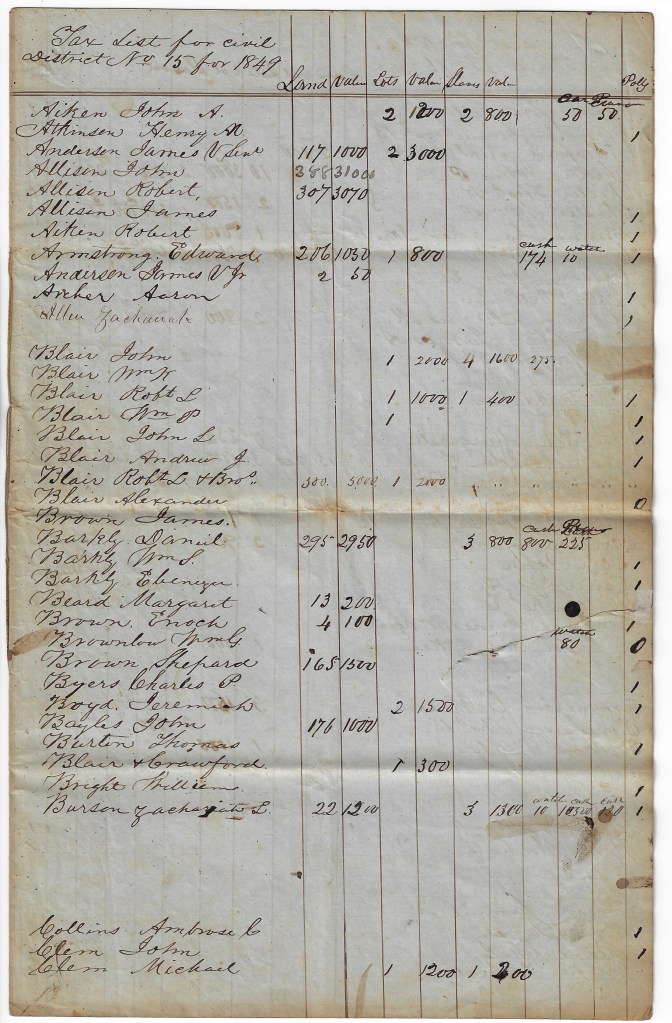 Tax List for civil
District No 15 for 1849
Land Value Lots Value Slavs Valu Polls
Aiken John A. 2 1200 2 800 50 50
Atkinson Henry M 1
Anderson James V Senr 117 1000 2 3000
Allison John 388 31000
Allison Robert, 307 3070
Allison James 1
Aiken Robert 1
cash watch
Armstrong, Edward, 206 1030 1 800 174 10 1
Anderson James V Jr 2 50
Archer Aaron 1
Allen Zachariah 1
Blair John 1 2000 4 1600 275.
Blair Wm K
Blair Robt L 1 1000 1 400 1
Blair Wm P 1 1
Blair John L 1
Blair Andrew J. 1
Blair Robt L & Bros. 500. 5000 1 2000 " " " " " " "
Blair Alexander 0
Brown James.
cash
Barkly Daniel 295 2950 3 800 800 225
Barkly Wm S. 1
Barkly Ebenezer 1
Beard Margaret 13 200
Brown, Enoch 4 100 1
watch
Brownlow Wm G. 80 0
Brown, Shepard 165 1500
Byers Charles P. 1
Boyd. Jeremiah 2 1500 1
Bayles John 176 1000
Burton Thomas 1
Blair & Crawford. 1 300
Bright William 1
watch cash
Burson Zachariah L. 22 1200 3 1300 10 1300 130 1
Collins Ambrose C 1
Clem John 1
Clem Michael 1 1200 1 200